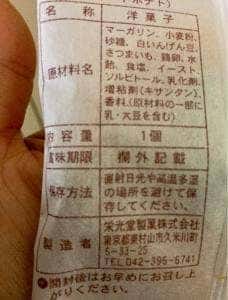 名称 洋菓子
原材料名 マーガリン、小麦粉、
砂糖、白いんげん豆、
さつまいも、鶏卵、水
飴、食塩、イースト、
ソルビトール、乳化剤、
増粘剤(キサンタン)、
香料、(原材料の一部に
乳・大豆を含む)
内容量 1個
賞味期限 欄外記載
保存方法 直射日光や高温多湿
の場所を避けて保
存してください。
製造者 栄光堂製菓株式会社
東京都東村山市久米川町
5-33-25
TEL042-395-6741
●開封後はお早めにお召し上
がりください。